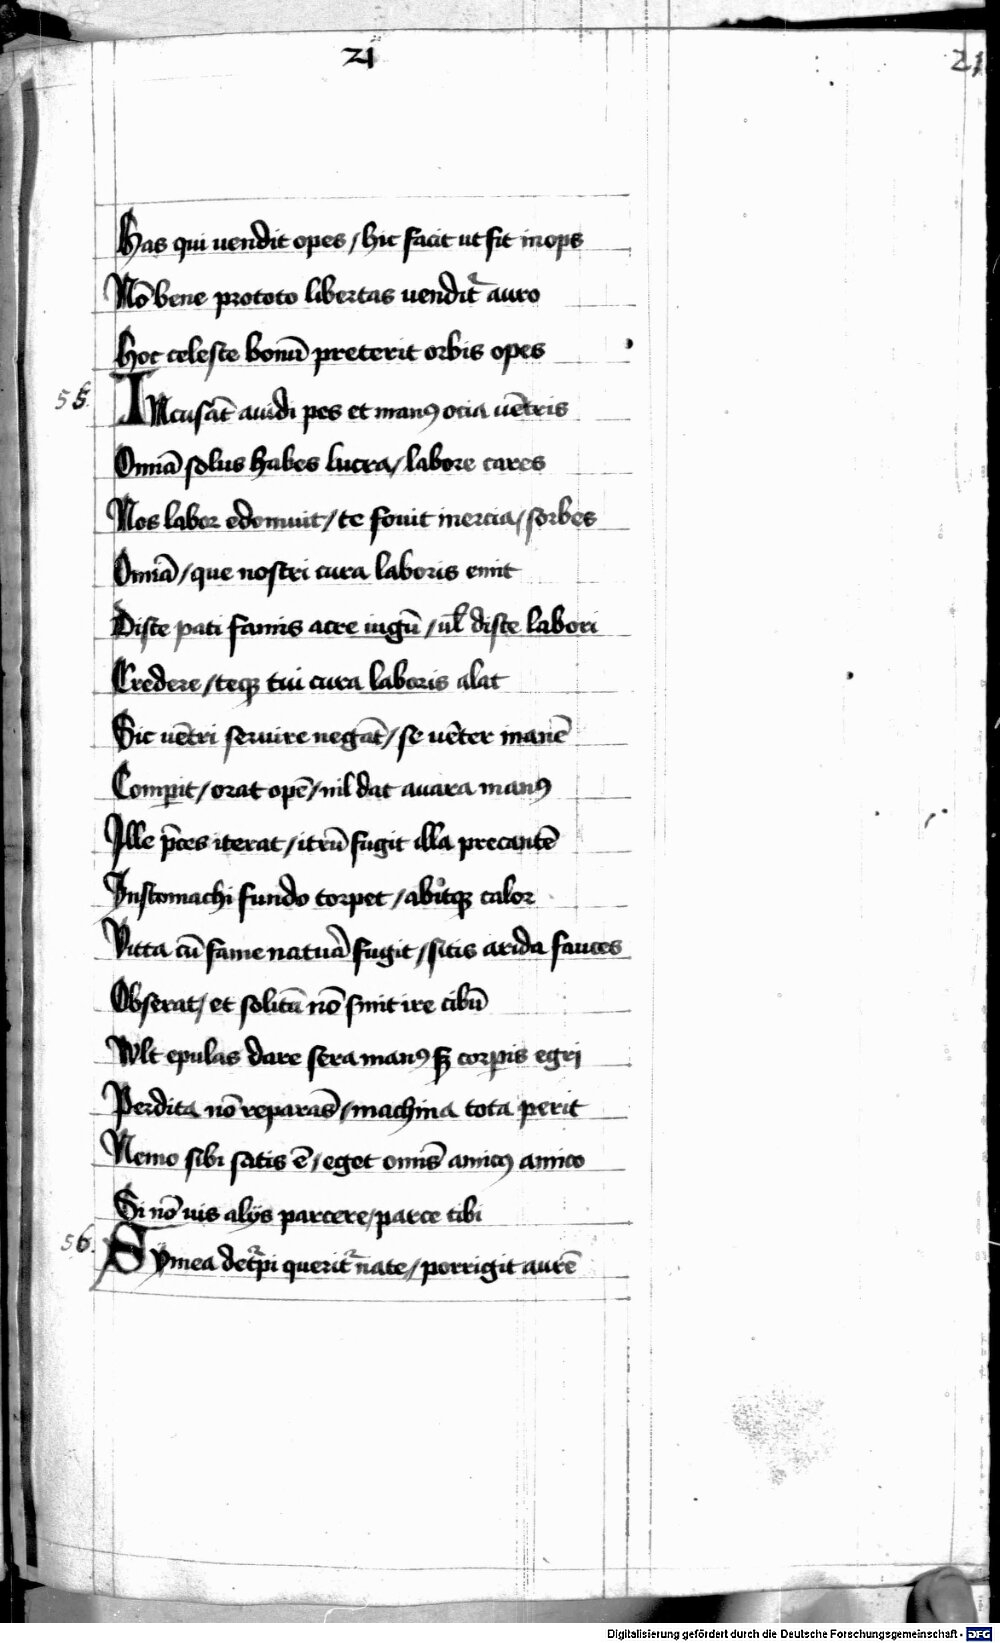 21
21
Has qui uendit opes / hic facit ut sit inops
Nō bene prototo libertas uendit᷑ auro
Hoc celeste bonū preterit orbis opes
55.
INcusāt auidi pes et manꝯ ocia uētris
Omīa solus habes lucra / labore cares
Nos labor edomuit / te fouit inercia / sorbes
Omīa / que nostri cura laboris emit
Disce pati famis acre iugū / ul̄ disce labori
Credere / teqꝫ tui cura laboris alat
Sic uētri seruire negāt / se uēter inanē
Comperit / orat opē / nil dat auara manꝯ
Ille p̄ces iterat / itrū fugit illa precantē
In stomachi fundo torpet / abitqꝫ calor
Victa cū fame natura fugit / sitis arida fauces
Obserat / et solitū nō sinit ire cibū
Wlt epulas dare sera manꝯ sꝫ corpis egri
Perdita nō reparās / machina tota perit
Nemo sibi satis ē / eget omīs amicꝯ amico
Si nō uis alijs parcere / parce tibi
56.
Symea det᷑pi querit᷑ nate / porrigit aurē
Digitalisierung gefördert durch die Deutsche Forschungsgemeinschaft - DFG